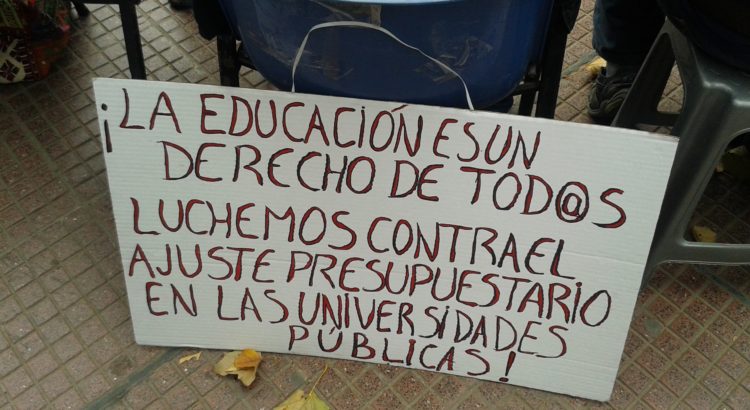 ¡LA EDUCACIÓN ES UN
DERECHO DE TOD@S
LUCHEMOS CONTRA EL
AJUSTE PRESUPUESTARIO
EN LAS UNIVERSIDADES
PÚBLICAS!